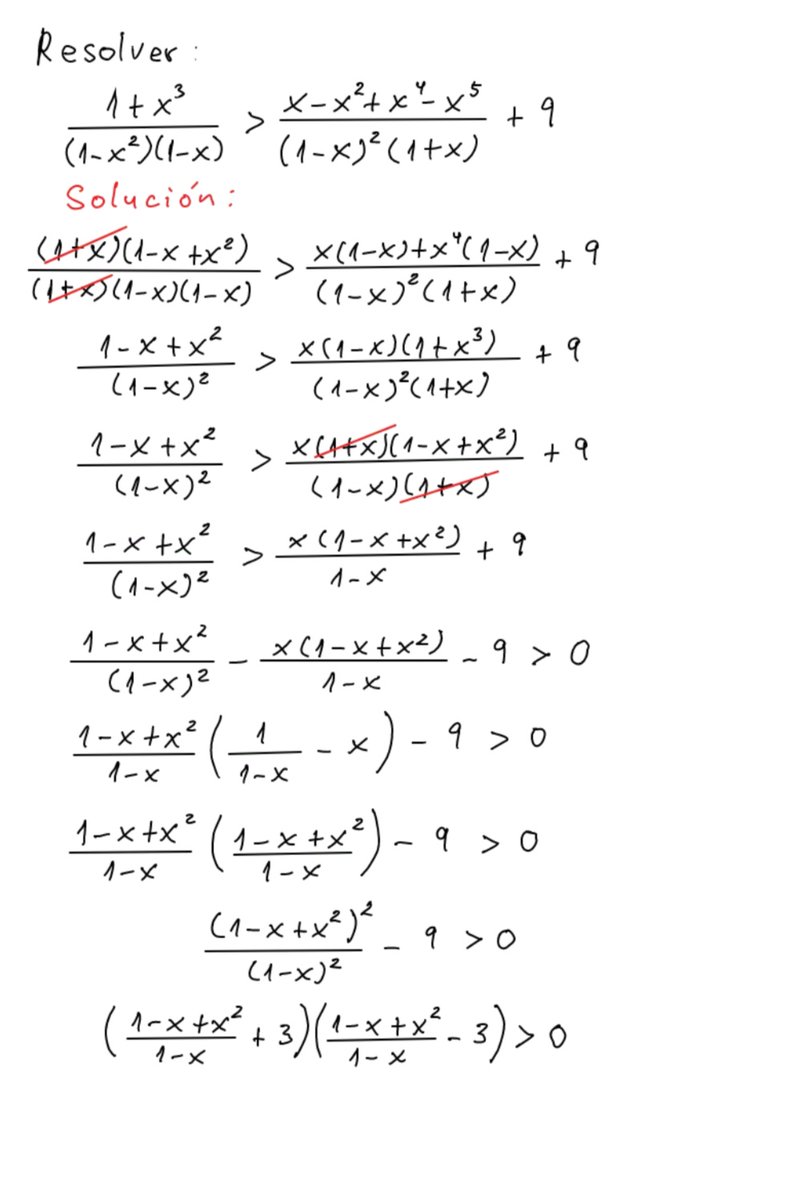 Resolver:
\frac{1+x^3}{(1-x^2)(1-x)} > \frac{x-x^2+x^4-x^5}{(1-x)^2(1+x)} + 9
Solución:
\frac{(1+x)(1-x+x^2)}{(1+x)(1-x)(1-x)} > \frac{x(1-x)+x^4(1-x)}{(1-x)^2(1+x)} + 9
\frac{1-x+x^2}{(1-x)^2} > \frac{x(1-x)(1+x^3)}{(1-x)^2(1+x)} + 9
\frac{1-x+x^2}{(1-x)^2} > \frac{x(1+x)(1-x+x^2)}{(1-x)(1+x)} + 9
\frac{1-x+x^2}{(1-x)^2} > \frac{x(1-x+x^2)}{1-x} + 9
\frac{1-x+x^2}{(1-x)^2} - \frac{x(1-x+x^2)}{1-x} - 9 > 0
\frac{1-x+x^2}{1-x} \left( \frac{1}{1-x} - x \right) - 9 > 0
\frac{1-x+x^2}{1-x} \left( \frac{1-x+x^2}{1-x} \right) - 9 > 0
\frac{(1-x+x^2)^2}{(1-x)^2} - 9 > 0
\left( \frac{1-x+x^2}{1-x} + 3 \right) \left( \frac{1-x+x^2}{1-x} - 3 \right) > 0